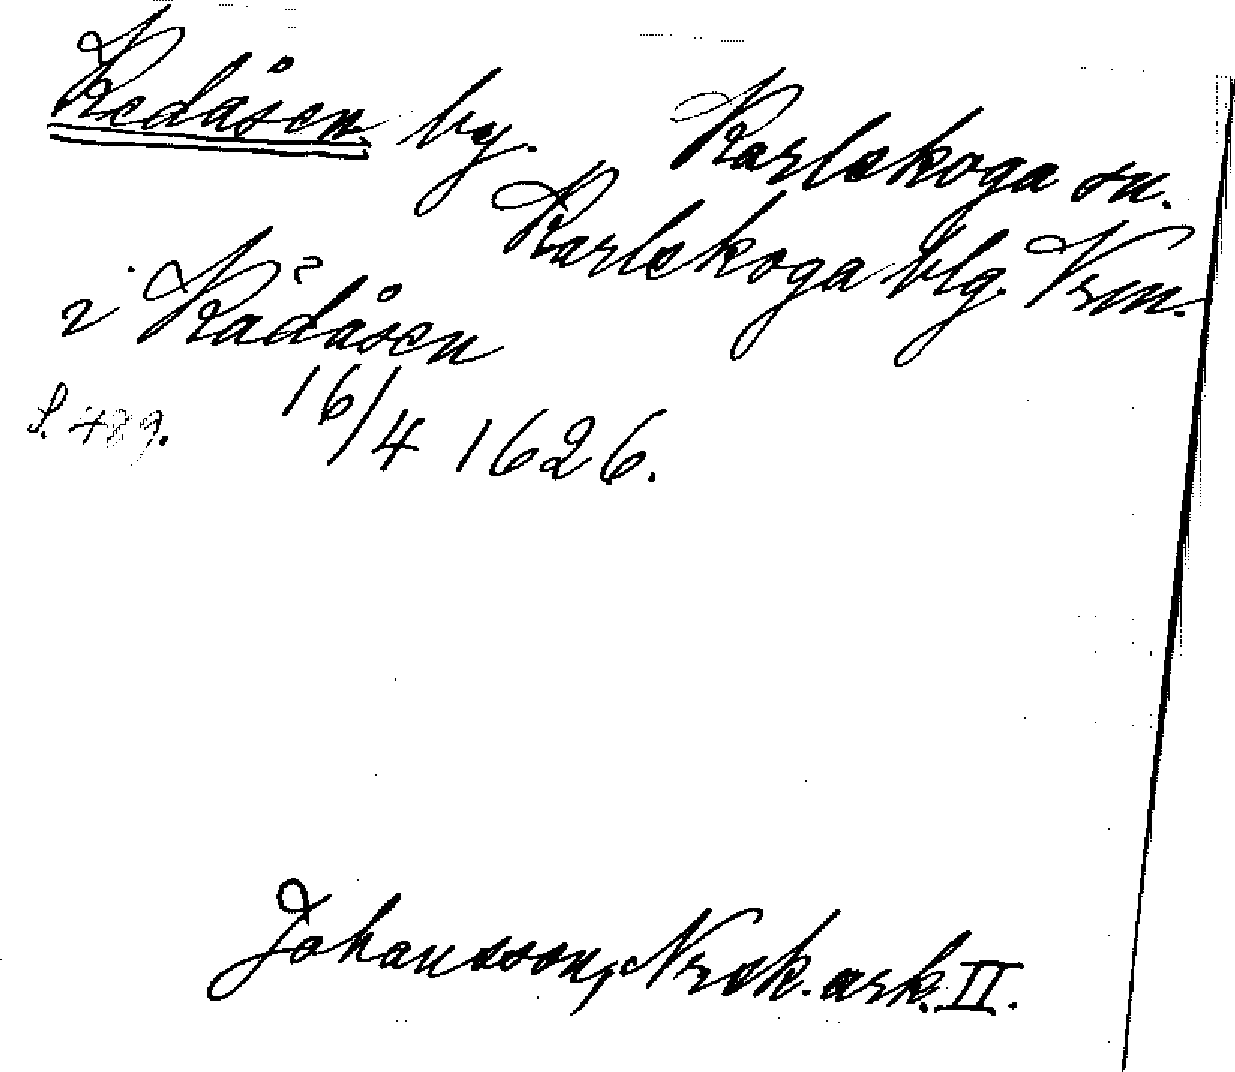 Kedåsen by. Karlskoga sn.
Karlskoga blg. Vrm.
i Kädåsen
S. 489. 16/4 1626.
Johansson, Norsk. ark. II.